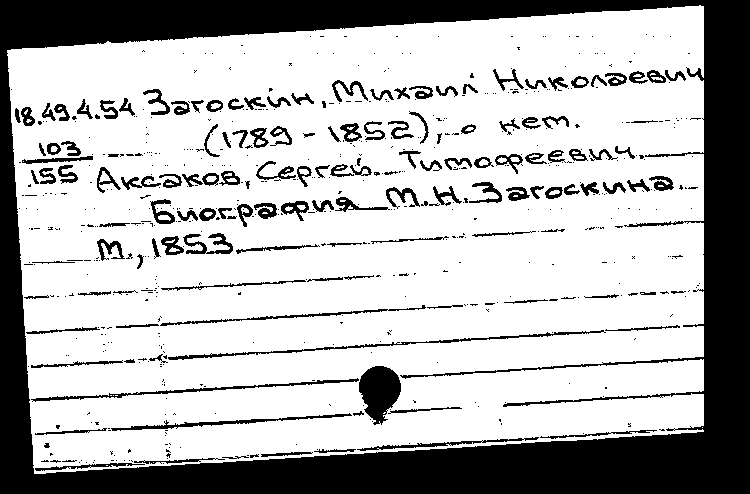 18.49.4.54 Загоскин, Михаил Николаевич
103 (1789 - 1852), о нем.
155 Аксаков, Сергей Тимофеевич.
Биография М.Н. Загоскина.
М., 1853.